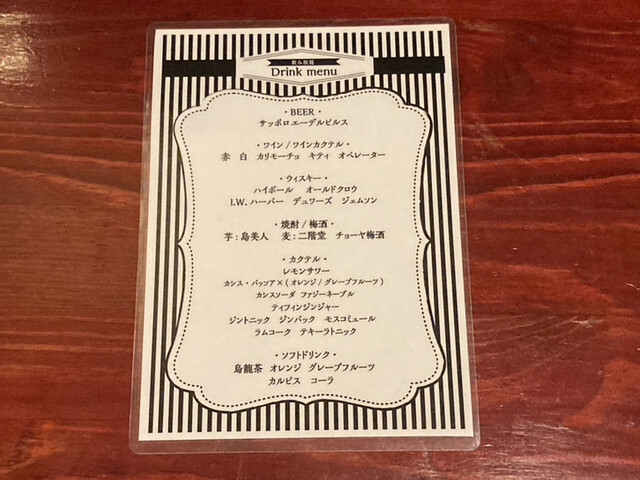 飲み放題
Drink menu
・BEER・
サッポロエーデルピルス
・ワイン/ワインカクテル・
赤 白 カリモーチョ キティ オペレーター
・ウィスキー・
ハイボール オールドクロウ
I.W.ハーパー デュワーズ ジェムソン
・焼酎/梅酒・
芋:島美人 麦:二階堂 チョーヤ梅酒
・カクテル・
レモンサワー
カシス・パッソア×(オレンジ/グレープフルーツ)
カシスソーダ ファジーネーブル
ティフィンジンジャー
ジントニック ジンバック モスコミュール
ラムコーク テキーラトニック
・ソフトドリンク・
烏龍茶 オレンジ グレープフルーツ
カルピス コーラ